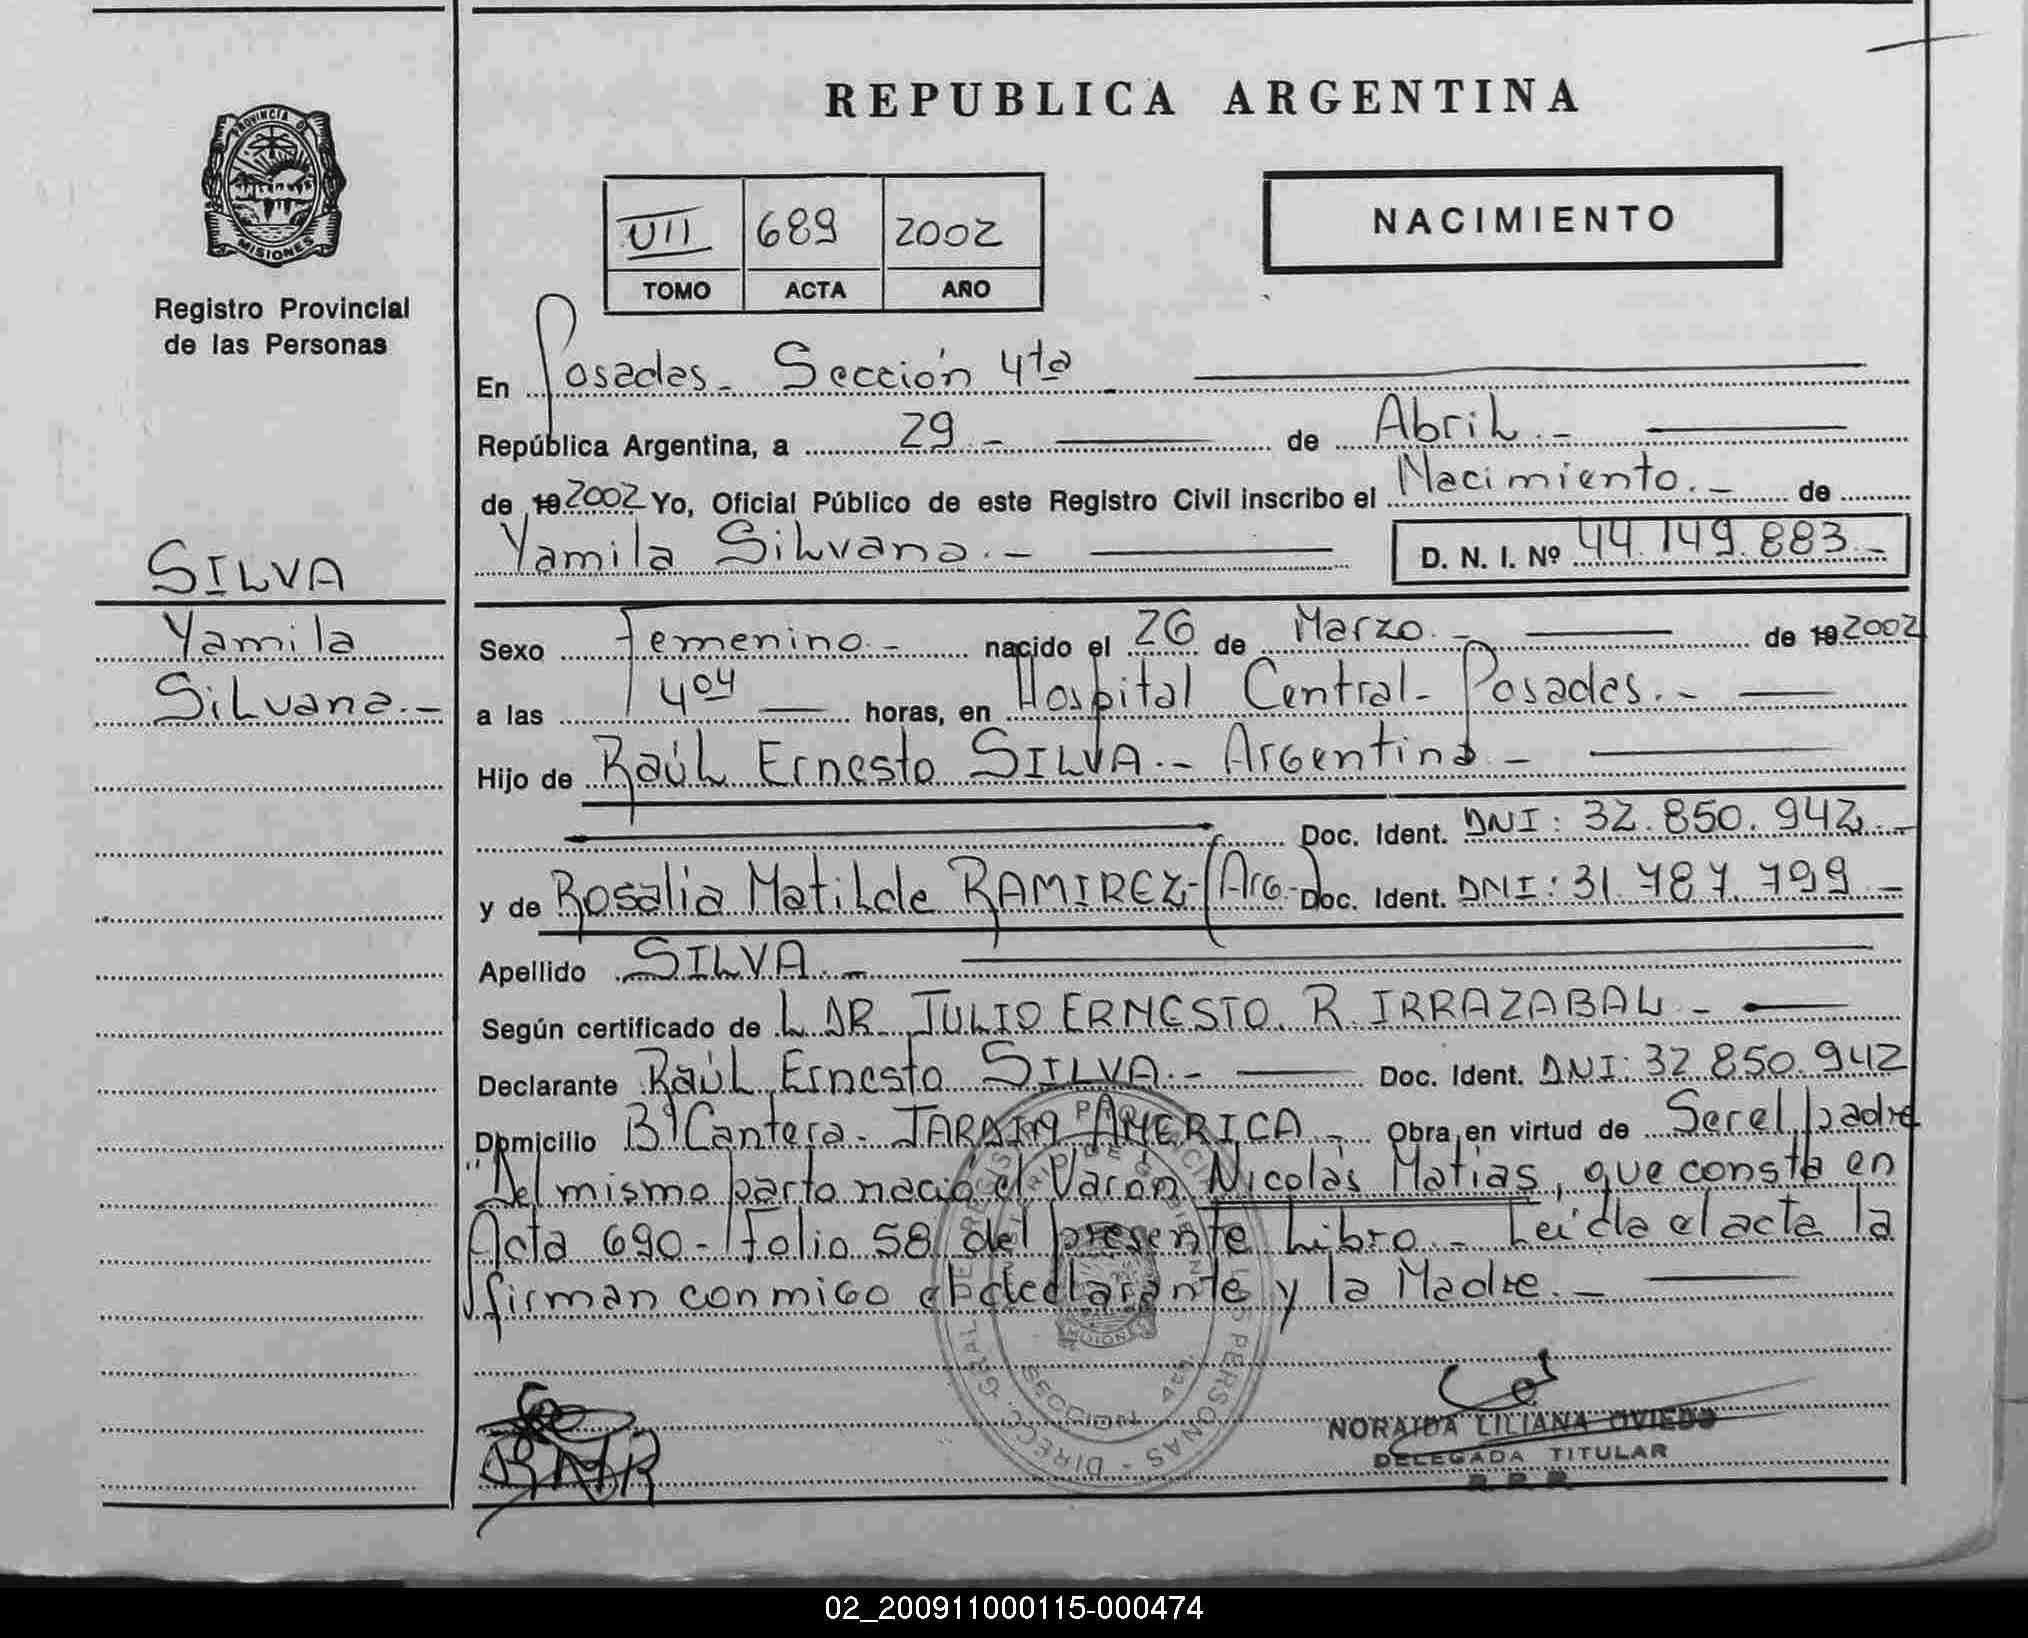 REPUBLICA ARGENTINA
PROVINCIA DE
MISIONES
Registro Provincial
de las Personas
VII 689 2002
TOMO ACTA AÑO
NACIMIENTO
En Posadas - Sección 4ta
República Argentina, a 29.- de Abril.-
de 19 2002 Yo, Oficial Público de este Registro Civil inscribo el Nacimiento.- de
Yamila Silvana.- D. N. I. Nº 44.149.883.-
SILVA
Yamila
Silvana.-
Sexo Femenino.- nacido el 26 de Marzo.- de 19 2002
a las 4 04 horas, en Hospital Central - Posadas.-
Hijo de Raúl Ernesto SILVA.- Argentino -
Doc. Ident. DNI: 32.850.942.-
y de Rosalia Matilde RAMIREZ-(Arg.-) Doc. Ident. DNI: 31.787.799.-
Apellido SILVA.-
Según certificado de L DR JULIO ERNESTO. R. IRRAZABAL -
Declarante Raúl Ernesto SILVA.- Doc. Ident. DNI: 32 850.942
Domicilio Bº Cantera - JARDIN AMERICA - Obra en virtud de Ser el padre
"Del mismo parto nació el Varón Nicolás Matias, que consta en
Acta 690 - Folio 58 del presente Libro - Leída el acta la
firman conmigo el declarante y la Madre.-
NORAIDA LILIANA OVIEDO
DELEGADA TITULAR
R. P. P.
02_200911000115-000474